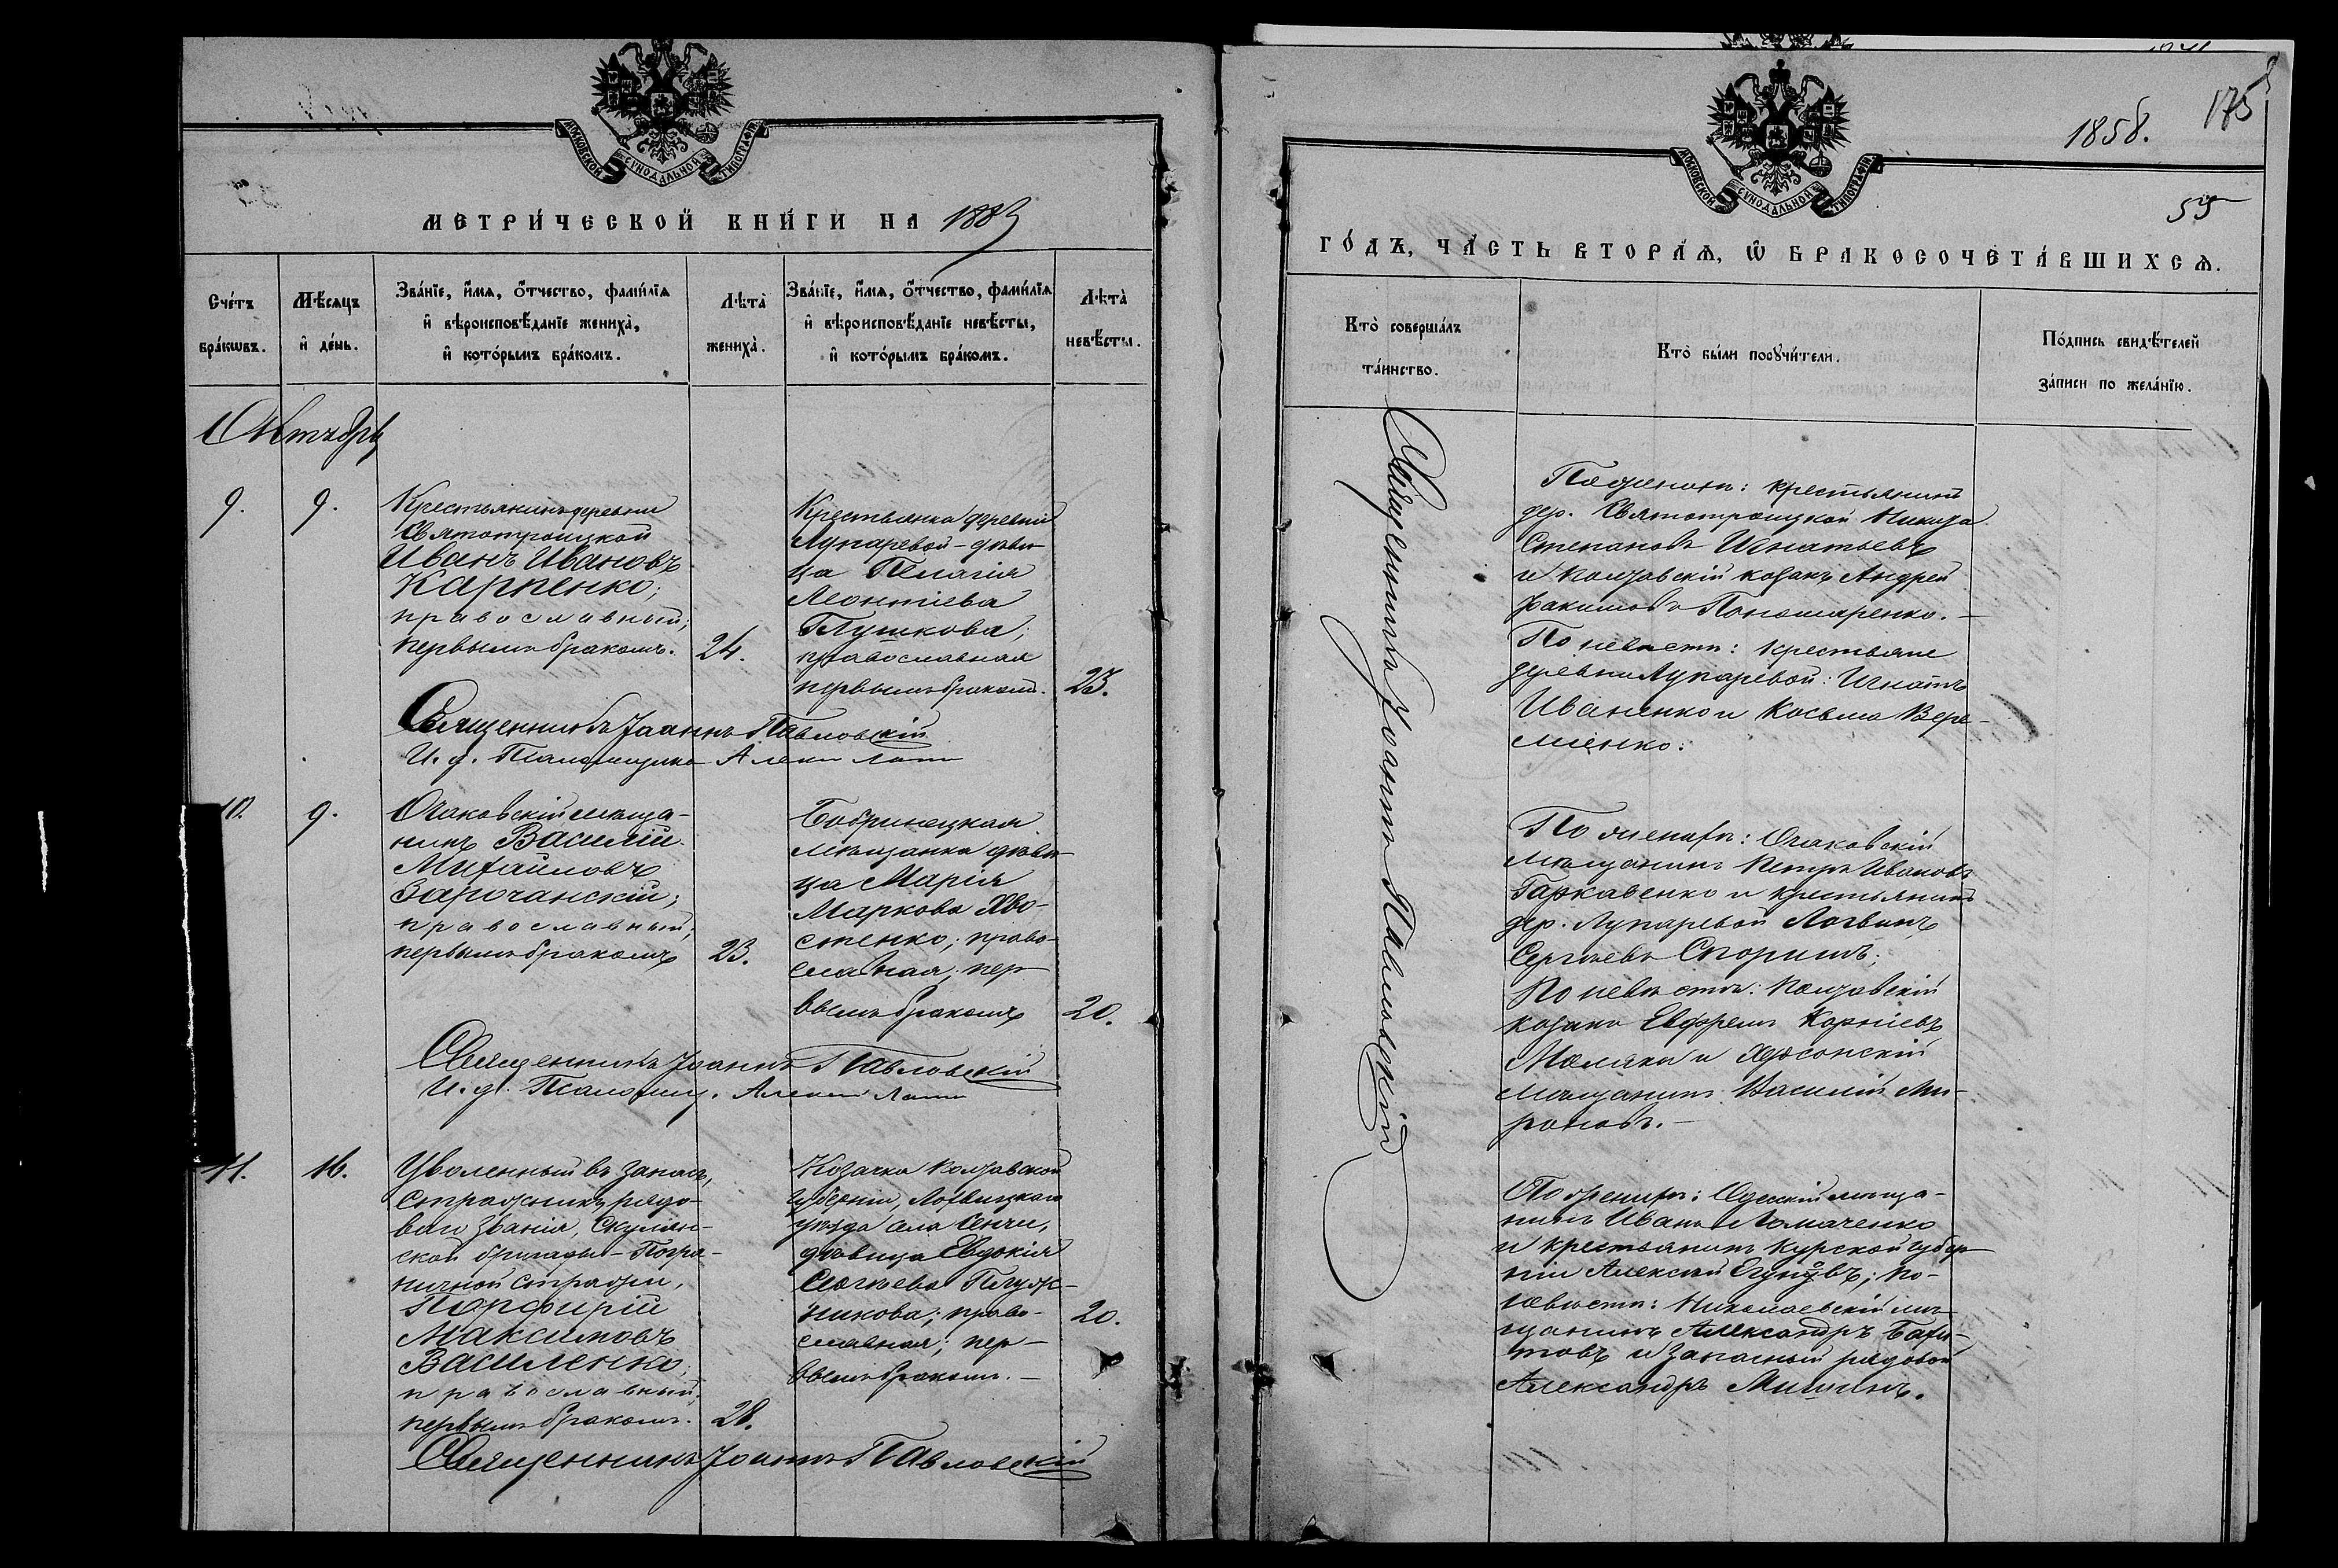 МОСКОВСКОЙ СУНОДАЛЬНОЙ ТИПОГРАФІИ
МЕТРИ́ЧЕСКОЙ КНИ́ГИ НА 1883
Сче́тъ бра́кѡвъ.
Мѣ́сяцъ и де́нь.
Зва́нїе, и́мя, о́тчество, фами́лїя
и вѣроисповѣ́данїе жениха̀,
и кото́рымъ бра́комъ.
Лѣта̀ жениха̀.
Зва́нїе, и́мя, о́тчество, фами́лїя
и вѣроисповѣ́данїе невѣ́сты,
и кото́рымъ бра́комъ.
Лѣта̀ невѣ́сты.
Октябрь
9.
9.
Крестьянинъ деревни
Святотроицкой
Иванъ Ивановъ
Карпенко;
православный;
первымъ бракомъ.
24.
Крестьянка деревни
Лупаревой - дѣви-
ца Пелагія
Леонтіева
Глушкова;
православная
первымъ бракомъ.
23.
Священникъ Іоаннъ Павловскій
И. д. Псаломщика
10.
9.
Очаковскій мѣща-
нинъ Василій
Михайловъ
Зарочанскій;
православный;
первымъ бракомъ
23.
Бобринецкая
мѣщанка дѣви-
ца Марія
Маркова Хво-
стенко; право-
славная; пер-
вымъ бракомъ
20.
Священникъ Іоаннъ Павловскій
И. д. Псаломщ.
11.
16.
Уволенный въ запасъ,
стражникъ рядо-
ваго званія, Скулян-
ской бригады - Погра-
ничной стражи,
Порфирій
Максимовъ
Василенко;
православный;
первымъ бракомъ.
28.
Козачка Полтавской
губерніи, Лохвицкаго
уѣзда села Сенчи,
дѣвица Евдокія
Сергѣева Плуж-
никова; право-
славная; пер-
вымъ бракомъ. -
20.
Священникъ Іоаннъ Павловскій
МОСКОВСКОЙ СУНОДАЛЬНОЙ ТИПОГРАФІИ
1858.
175
55
ГО́ДЪ, ЧА́СТЬ ВТОРА́Я, Ѡ БРАКОСОЧЕТА́ВШИХСЯ.
Кто̀ соверша́лъ
та́инство.
Кто̀ бы́ли поручи́тели.
По́дпись свидѣ́телей
за́писи по жела́нїю.
Священникъ Іоаннъ Павловскій
По женихѣ: крестьянинъ
дер. Святотроицкой Никита
Степановъ Игнатьевъ
и Полтавскій козакъ Андрей
Пономаренко. -
По невѣстѣ: крестьяне
деревни Лупаревой: Игнатъ
Иваненко и Косьма Вере-
мѣенко.
По женихѣ: Очаковскій
мѣщанинъ Петръ Ивановъ
Гаркавенко и крестьянинъ
дер. Лупаревой Логвинъ
Сергѣевъ Споришъ;
По невѣстѣ: Полтавскій
козакъ Евфремъ Корніевъ
Маляка и Херсонскій
мѣщанинъ Василій Ми-
роновъ. -
По женихѣ: Одесскій мѣща-
нинъ Иванъ Ломаченко
и крестьянинъ Курской губер-
ніи Алексѣй Егуновъ; по-
невѣстѣ: Николаевскій мѣ-
щанинъ Александръ Бахи-
товъ и запасный рядовой
Александръ Мишинъ.